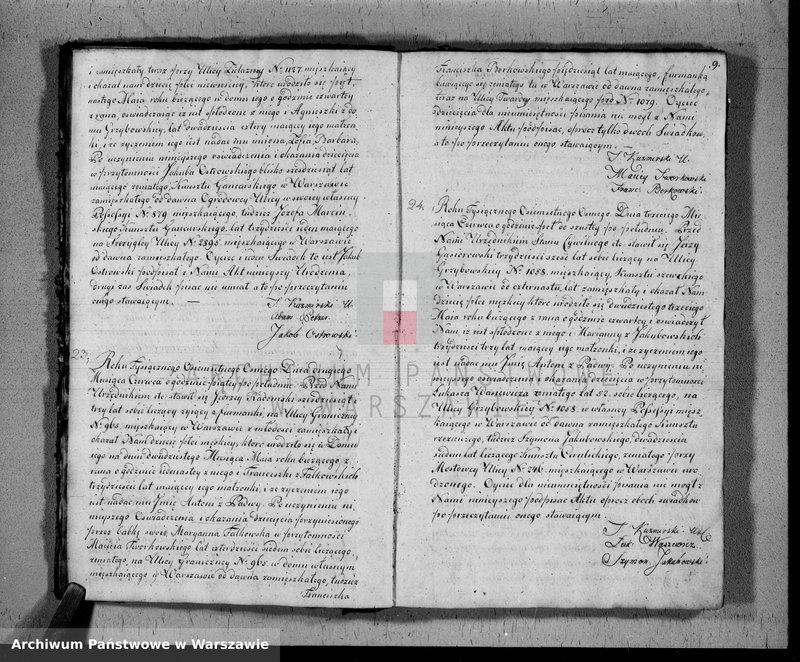 i zamięszkały teraz przy Ulicy Żelazney No 1127 mięszkaiący
i okazał nam dziecię płci niewieściey, które urodziło się
nastego Maia roku bieżącego w domu iego o godzinie czwartey
z rana, oświadczaiąc iż iest spłodzone z niego i Agnieszki z do
mu Grzybowskiey, lat dwadzieścia cztery maiącey iego małżon
ki, i że życzeniem iego iest nadać mu imiona Zofia, Barbara,
Po uczynieniu ninieyszego oświadczenia i okazania dziecięcia
w przytomności Jakuba Ostrowskiego blisko sześdziesiąt lat
maiącego Kunsztu Garncarskiego w Warszawie
zamięszkałego od dawna Ulicy w swoiey własney
Possessyi No 879 mięszkaiącego, tudzież Jozefa Marcin
skiego Kunsztu Garncarskiego, lat trzydzieści ieden maiącego
na Ulicy No 2895 mięszkaiącego w Warszawie
od dawna zamięszkałego. Oyciec i ieden Swiadek to iest Jakub
Ostrowski podpisał z Nami Akt ninieyszy Urodzenia,
drugi zaś Swiadek pisać nie umiał a to po przeczytaniu
onego stawaiącym. —
J. Kuzmirski U.
Adam
Jakob Ostrowski
23.
Roku Tysiącznego Osiemsetnego Osmego. Dnia drugiego
Miesiąca Czerwca o godzinie piątey po południu. Przed Nami
Urzędnikiem &c. stawił się Jerzy Radomski sześdziesiąt i
trzy lat sobie liczący żyiący z furmanki, na Ulicy Graniczney
No 965 mięszkaiący w Warszawie z młodości zamięszkały i
okazał Nam dziecię płci męskiey, które urodziło się w Domu
iego na dniu dwudziestego Miesiąca Maia roku bieżącego, z
rana o godzinie iedenastey z niego i Franciszki z Falkowskich
trzydzieści lat maiącey iego małżonki, i że życzeniem iego
iest nadać mu Imię Antoni z Padwy. Po uczynieniu ni,
nieyszego Oświadczenia i okazania dziecięcia przyniesionego
przez babkę swoię Maryanna Falkowska w przytomności
Macieja Tworkowskiego lat czterdzieści siedem sobie liczącego,
na Ulicy Graniczney No 965 w domu własnym
mięszkaiącego w Warszawie od dawna zamięszkałego, tudzież
Franciszka
9.
Franciszka Borkowskiego pięćdziesiąt lat maiącego, furmanką
bawiącego się w Warszawie od dawna zamięszkałego,
teraz na Ulicy Twardey mięszkaiącego pod No 1079. Oyciec
dziecięcia dla nieumieiętności pisania nie mógł z Nami
ninieyszego Aktu podpisać, oprocz tylko dwoch Swiadkow,
a to po przeczytaniu onego stawaiącym. —
J. Kuzmirski U.
Maciey Tworkowski
Franc: Borkowski.
24.
Roku Tysiącznego Osiemsetnego Osmego. Dnia trzeciego Mie
siąca Czerwca o godzinie poł do szostey po południu. Przed
Nami Urzędnikiem Stanu Cywilnego &c. stawił się Jerzy
Gąsiorowski trzydzieści sześć lat sobie liczący na Ulicy
Grzybowskiey No 1058. mięszkaiący, Kunsztu szewskiego
w Warszawie od czternastu lat zamięszkały i okazał Nam
dziecię płci męskiey które urodziło się dwudziestego trzeciego
Maia roku bieżącego z rana o godzinie czwartey i oświadczył
Nam iż iest spłodzone z niego i Maryanny z Jakubowskich
trzydzieści trzy lat maiącey iego małżonki, i że życzeniem iego
iest nadać mu Imię Antoni z Padwy. Po uczynieniu ni
nieyszego oświadczenia i okazania dziecięcia w przytomności
Łukasza Wąsiewicza lat 52. sobie liczącego, na
Ulicy Grzybowskiey No 1058. w własney Possessyi mięsz
kaiącego w Warszawie od dawna zamięszkałego Kunsztu
rzezniczego, tudzież Szymona Jakubowskiego, dwadzieścia
siedem lat liczącego Kunsztu Cyrulickiego, przy
Mostowey Ulicy No 246 mięszkaiącego w Warszawie uro
dzonego. Oyciec dla nieumieiętności pisania nie mógł z
Nami ninieyszego podpisać Aktu oprocz obuch swiadkow
po przeczytaniu onego stawaiącym.
J. Kuzmirski U.
Łuk: Wąsiewicz
Szymon Jakubowski.
ARCHIWUM PAŃSTWOWE
W WARSZAWIE
Archiwum Państwowe w Warszawie